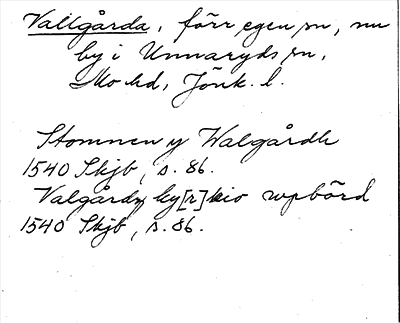 Vallgårda, förr egen sn, nu
by i Unnaryds sn,
Mo hd, Jönk. l.
Stomnen y Walgårdh
1540 Skjb, s. 86.
Valgårdz ky[r]kio wpbörd
1540 Skjb, s. 86.